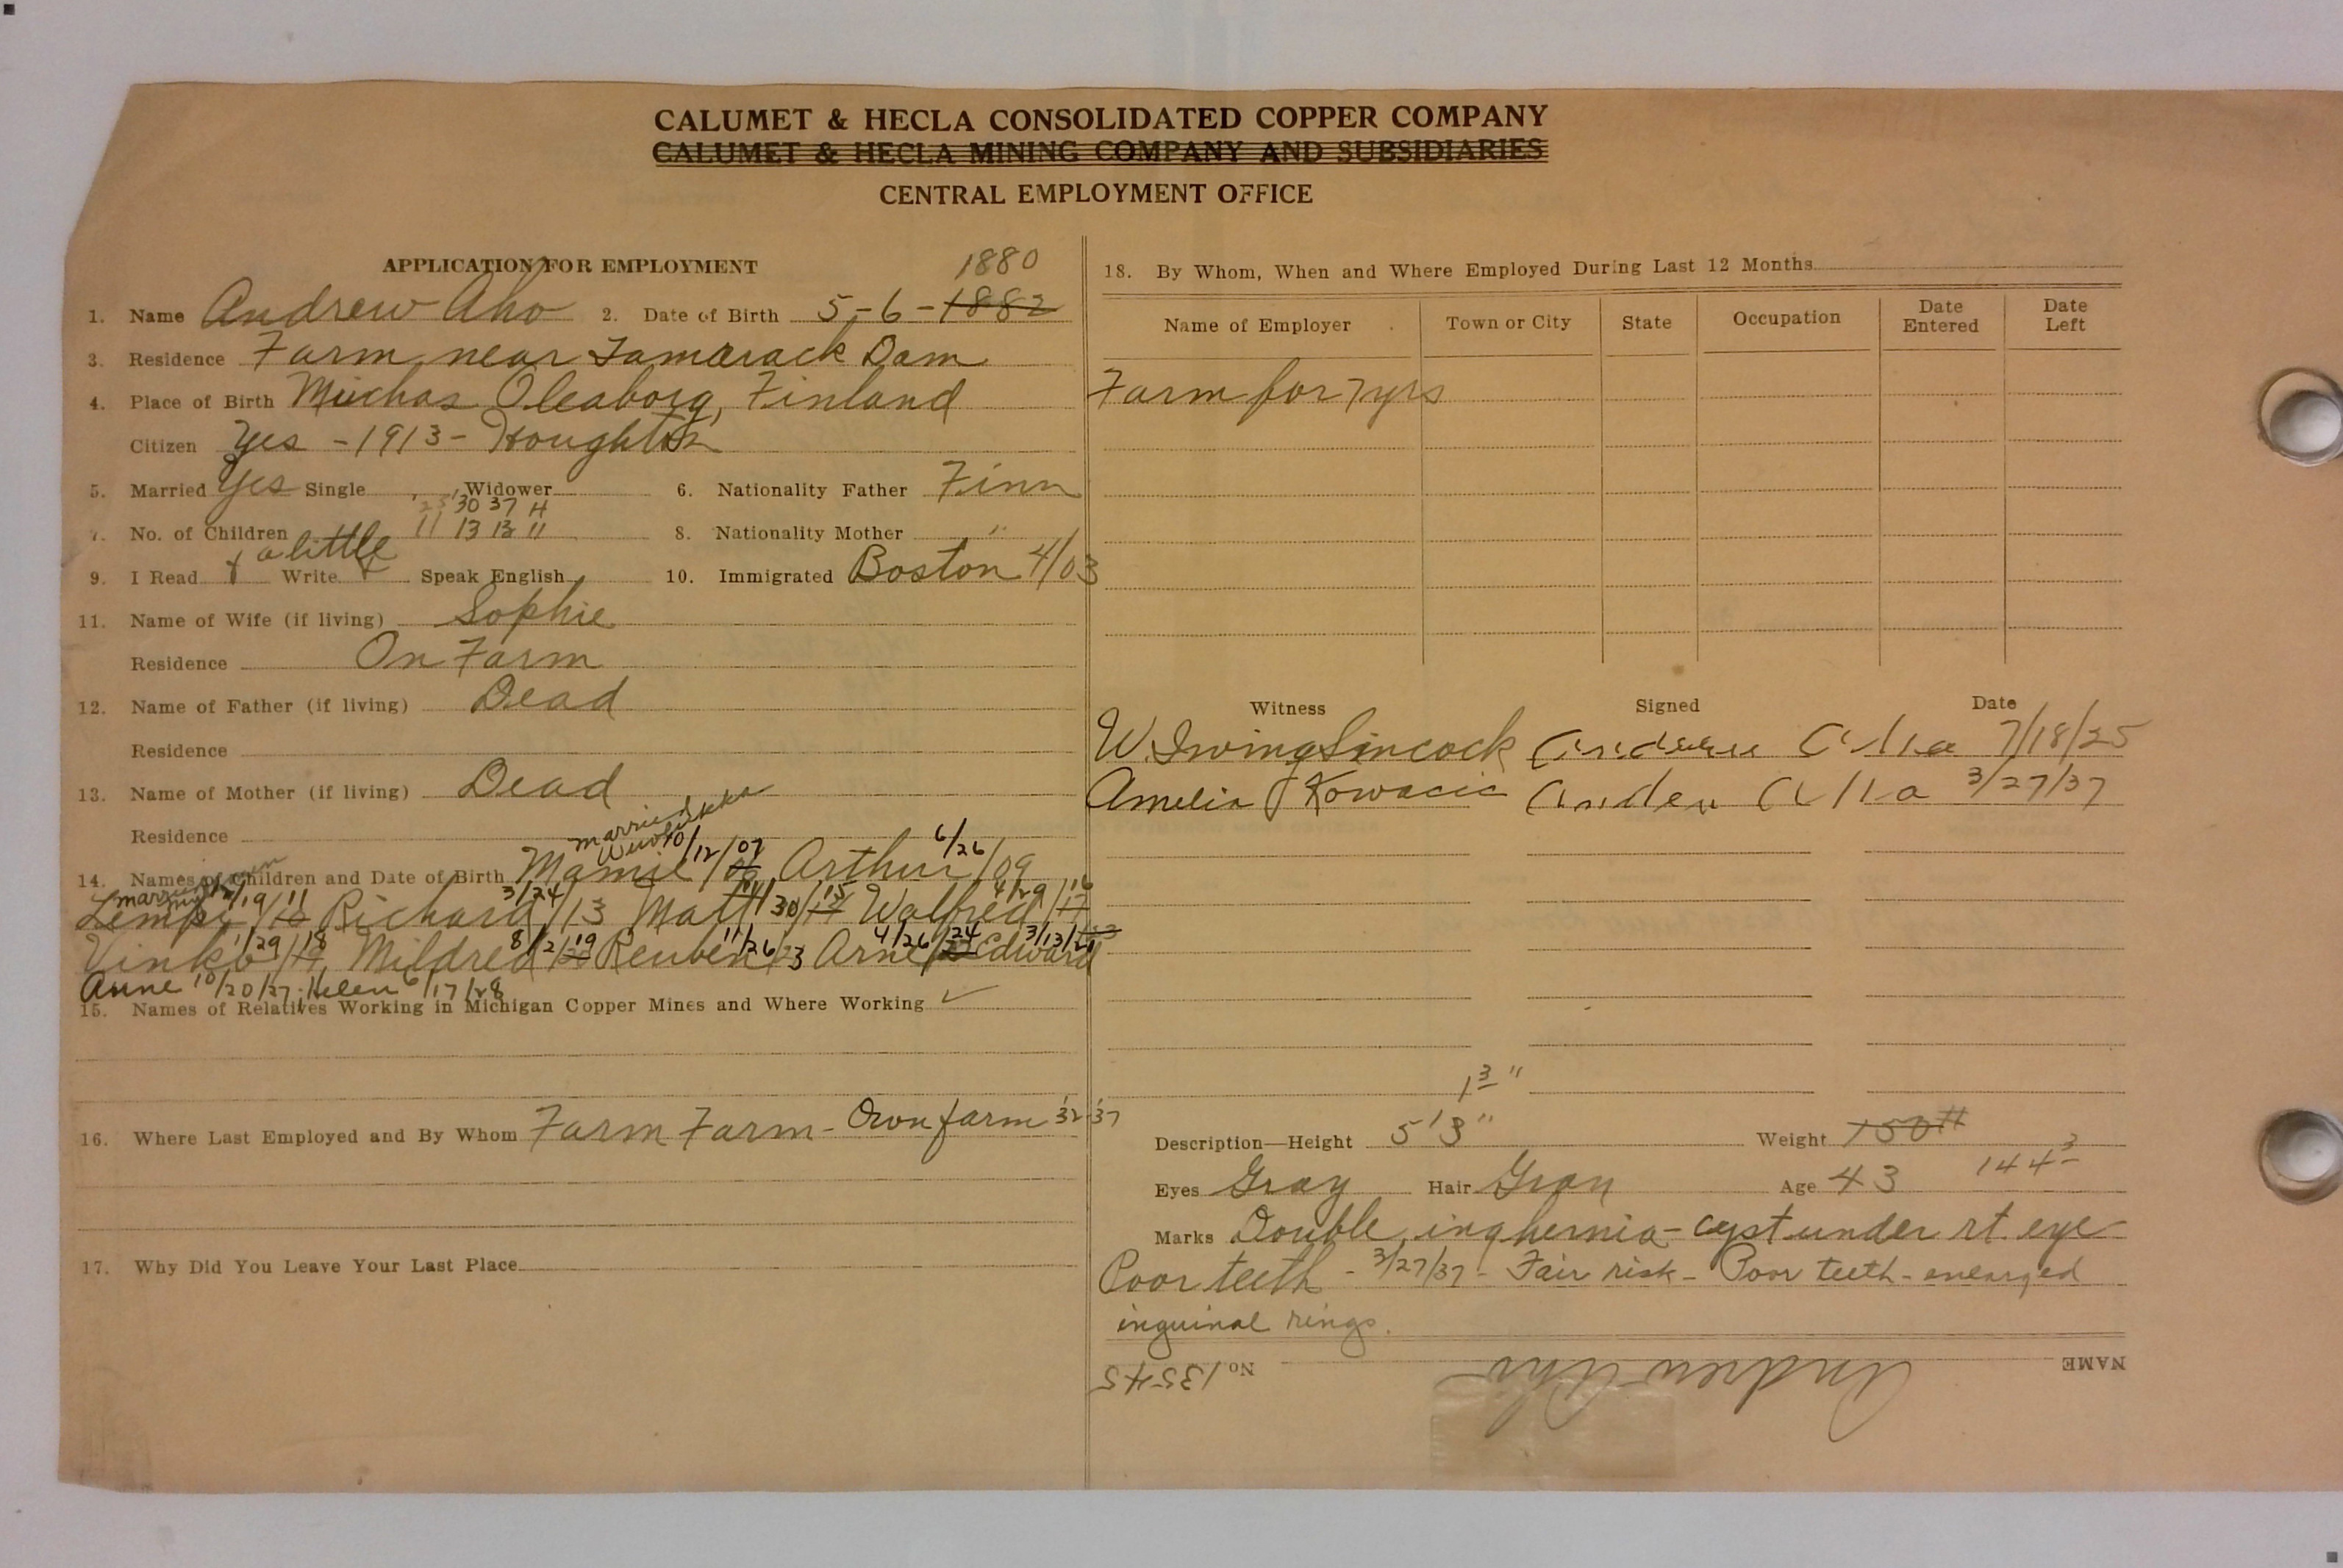 CALUMET & HECLA CONSOLIDATED COPPER COMPANY
CALUMET & HECLA MINING COMPANY AND SUBSIDIARIES
CENTRAL EMPLOYMENT OFFICE
APPLICATION FOR EMPLOYMENT
1880
1. Name Andrew Aho 2. Date of Birth 5-6-1882
3. Residence Farm near Tamarack Dam
4. Place of Birth Oleaborg, Finland
Citizen Yes - 1913 - Houghton
5. Married Yes Single Widower 6. Nationality Father Finn
30 37 H
7. No. of Children 11 13 13 11 8. Nationality Mother "
a little
9. I Read Write Speak English 10. Immigrated Boston 4/03
11. Name of Wife (if living) Sophie
Residence On Farm
12. Name of Father (if living) Dead
Residence
13. Name of Mother (if living) Dead
Residence
married
14. Names of Children and Date of Birth Mamie 10/12/07 Arthur 6/26/09
married
Lempi 12/19/11 Richard 3/24/13 Matt 30/15 Walfred 4/29/16
1/29/18 Mildred 8/2/19 Reuben 11/26/23 Arne 4/26/24 Edward 3/13/26
Anne 10/20/27; Helen 6/17/28
15. Names of Relatives Working in Michigan Copper Mines and Where Working ✓
16. Where Last Employed and By Whom Farm Farm - Own farm '32 '37
17. Why Did You Leave Your Last Place
18. By Whom, When and Where Employed During Last 12 Months
Name of Employer Town or City State Occupation Date Entered Date Left
Farm for 7 yrs
Witness Signed Date
W. Irving Sincock 7/18/25
Amelia Kowacic 3/27/37
1 3/4"
Description—Height 5'3" Weight 150#
Eyes Gray Hair Gray Age 43 144
Marks Double ing hernia - cyst under rt. eye
Poor teeth - 3/27/37 - Fair risk - Poor teeth - enlarged
inguinal rings.
NAME No 13545